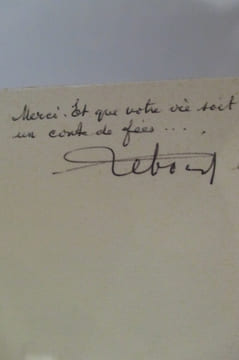 Merci. Et que votre vie soit
un conte de fées....